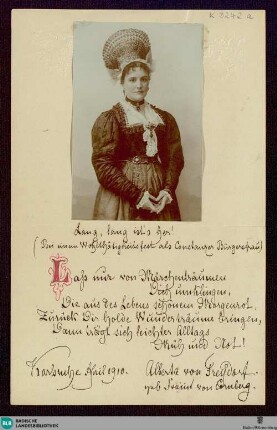 K 3242 a
Lang, lang ist's her!
(Bei einem Wohlthätigkeitsfest als Constanzer Bürgersfrau)
Laß nur von Märchenträumen
Dich umklingen,
Die aus des Lebens schönem Morgenrot,
Zurück Dir holde Wunderträume bringen,
Dann trägt sich leichter Alltags
Müh und Not!
Karlsruhe April 1910. Alberta von Freydorf
geb. Freiin von Cornberg.
BLB BADISCHE
LANDESBIBLIOTHEK
Baden-Württemberg